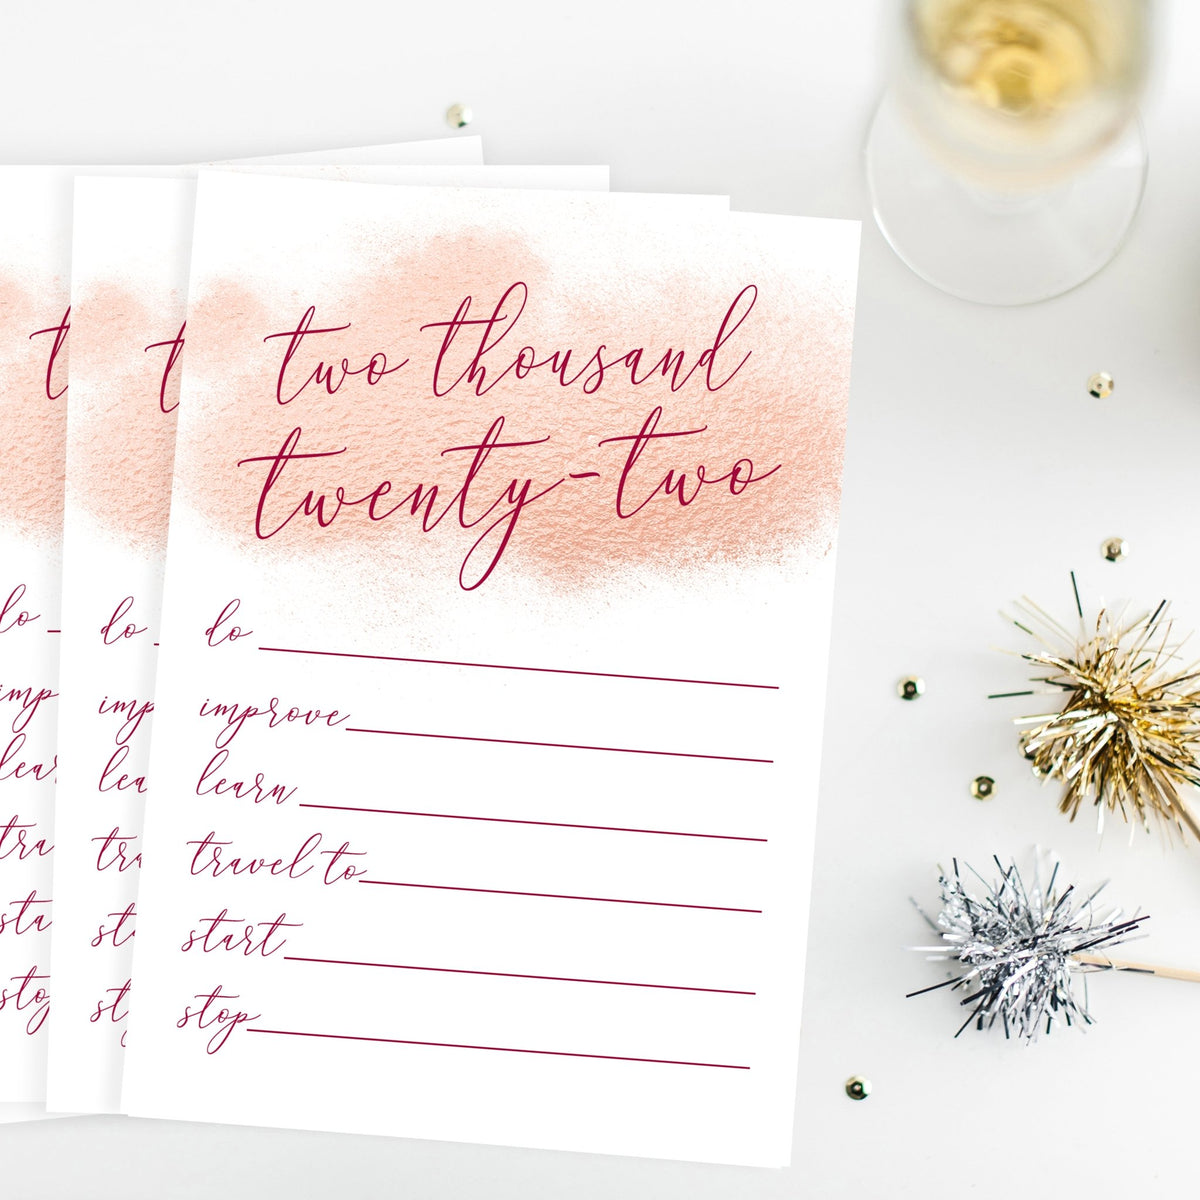 two thousand
twenty-two
do
improve
learn
travel to
start
stop
do
do